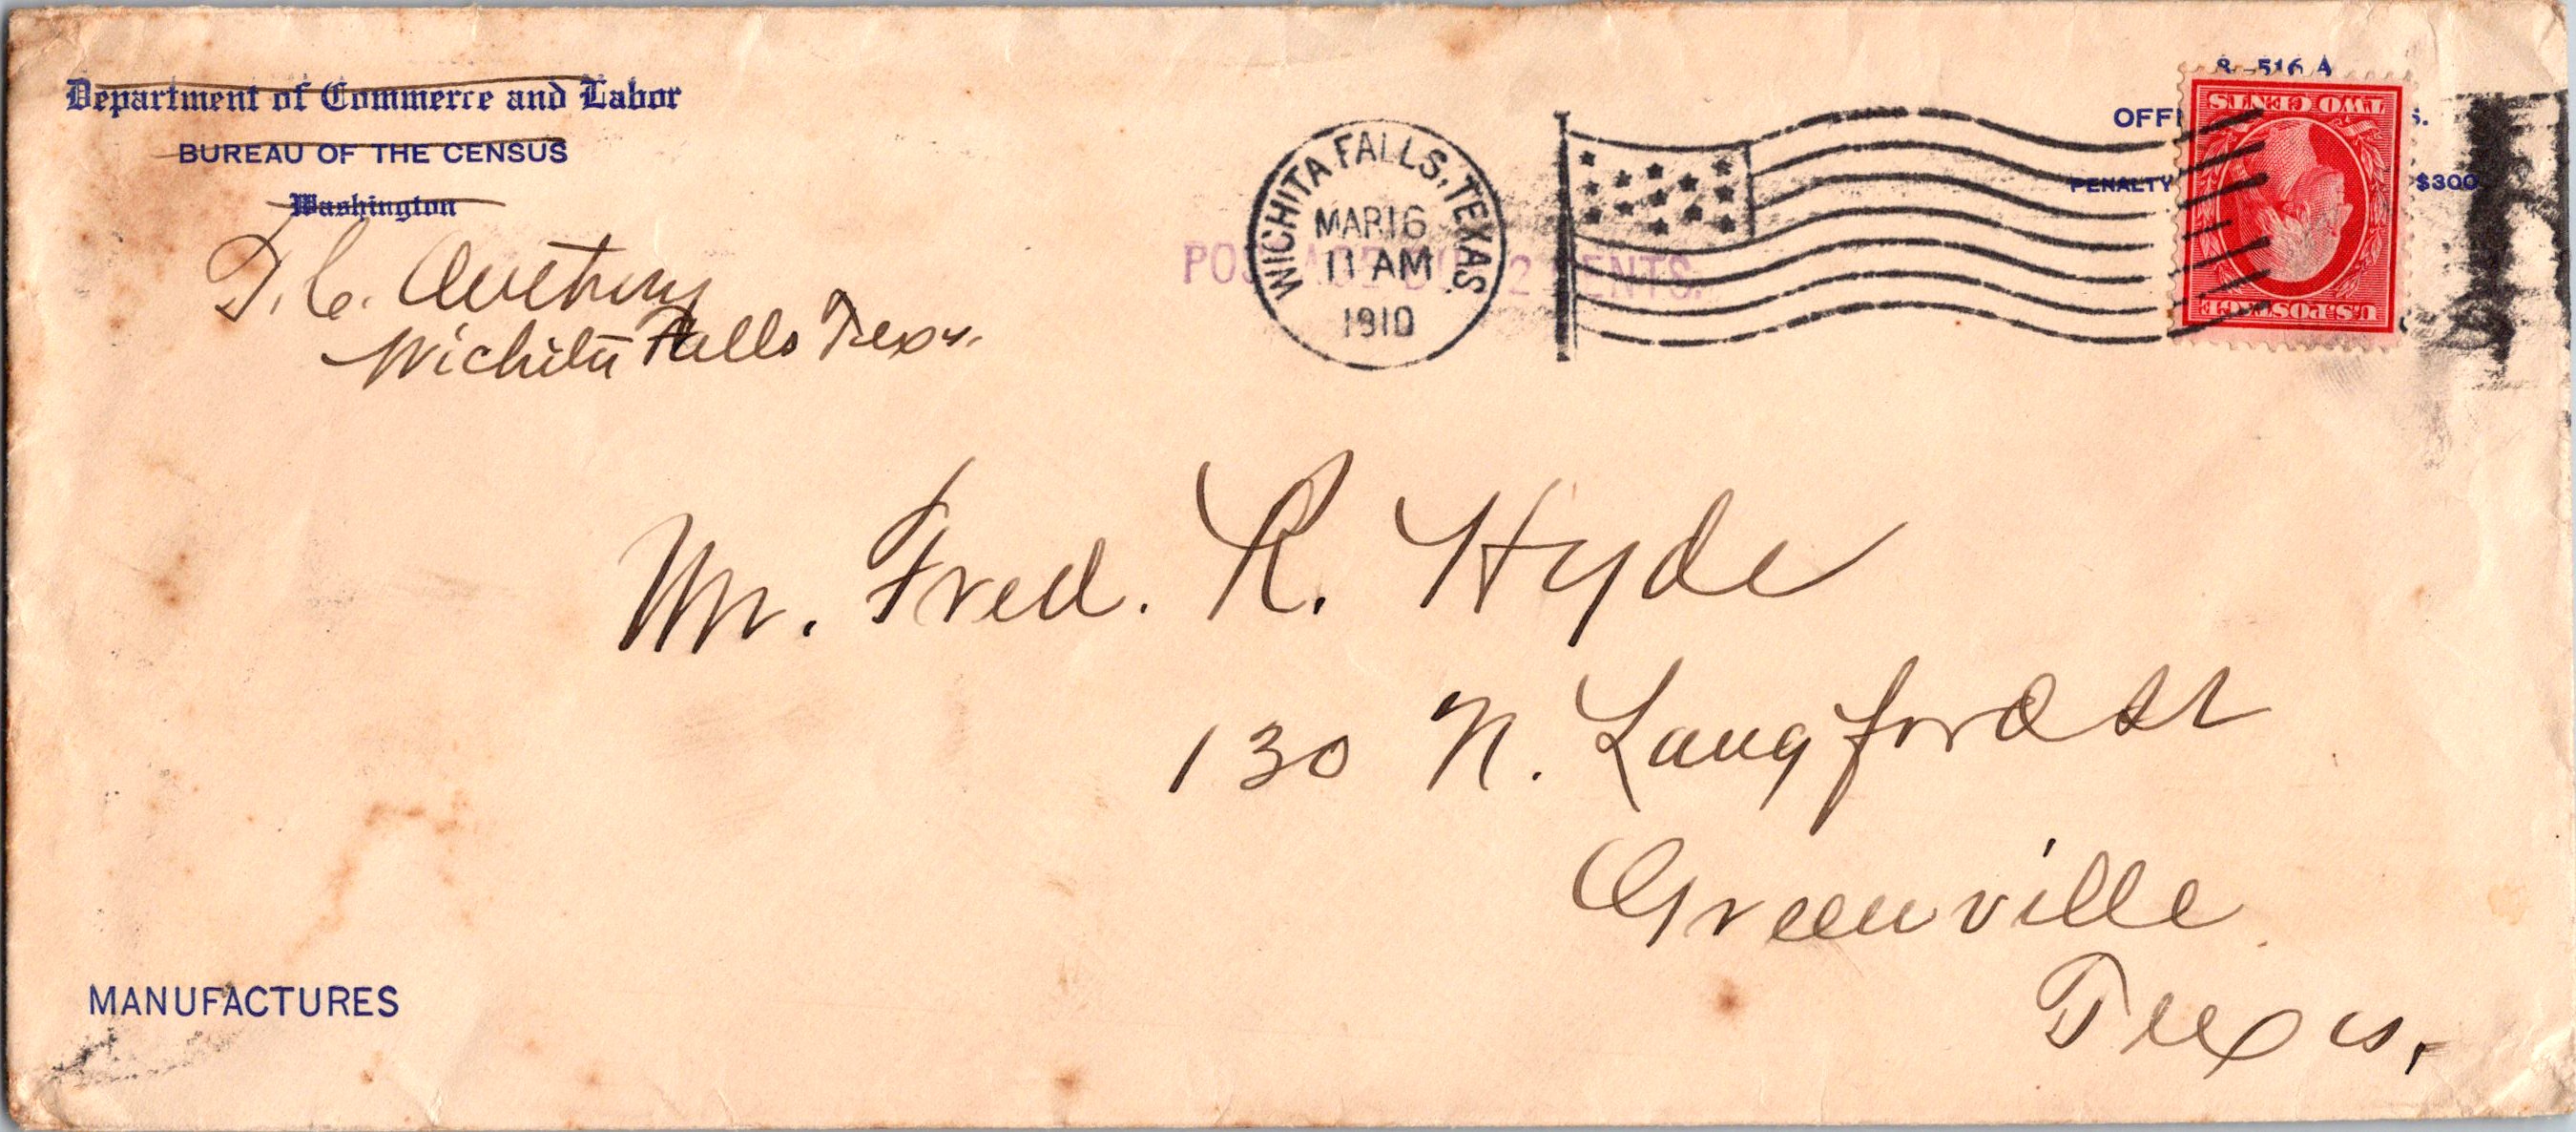 Department of Commerce and Labor
BUREAU OF THE CENSUS
Washington
T. C.
Wichita Falls Texas.
WICHITA FALLS, TEXAS
MAR 16
11 AM
1910
POSTAGE DUE 2 CENTS.
8-516 A
PENALTY $300
U.S. POSTAGE
TWO CENTS
Mr. Fred. R. Hyde
130 N. Langford St
Greenville
Texas.
MANUFACTURES